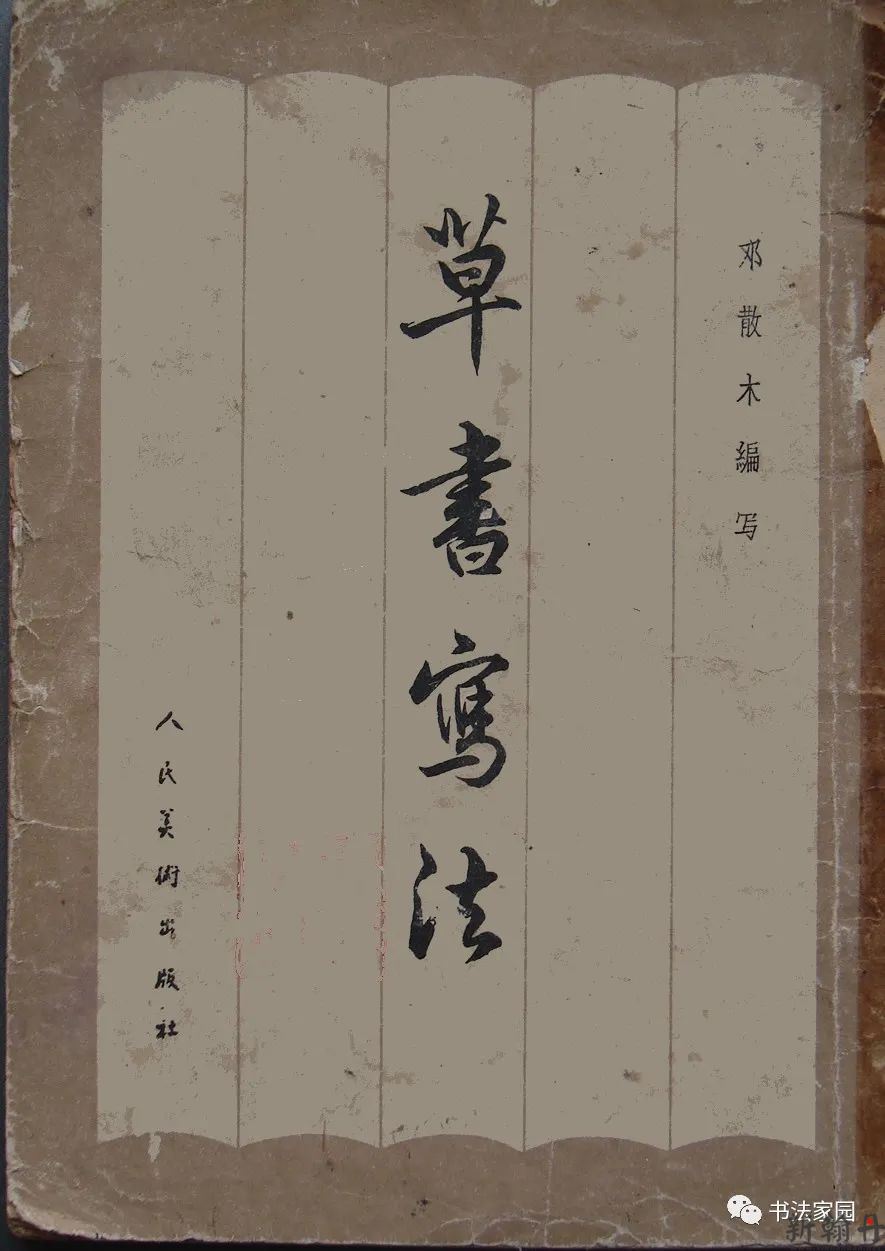 邓散木编写
草書寫法
人民美術出版社
书法家园
新翰丹